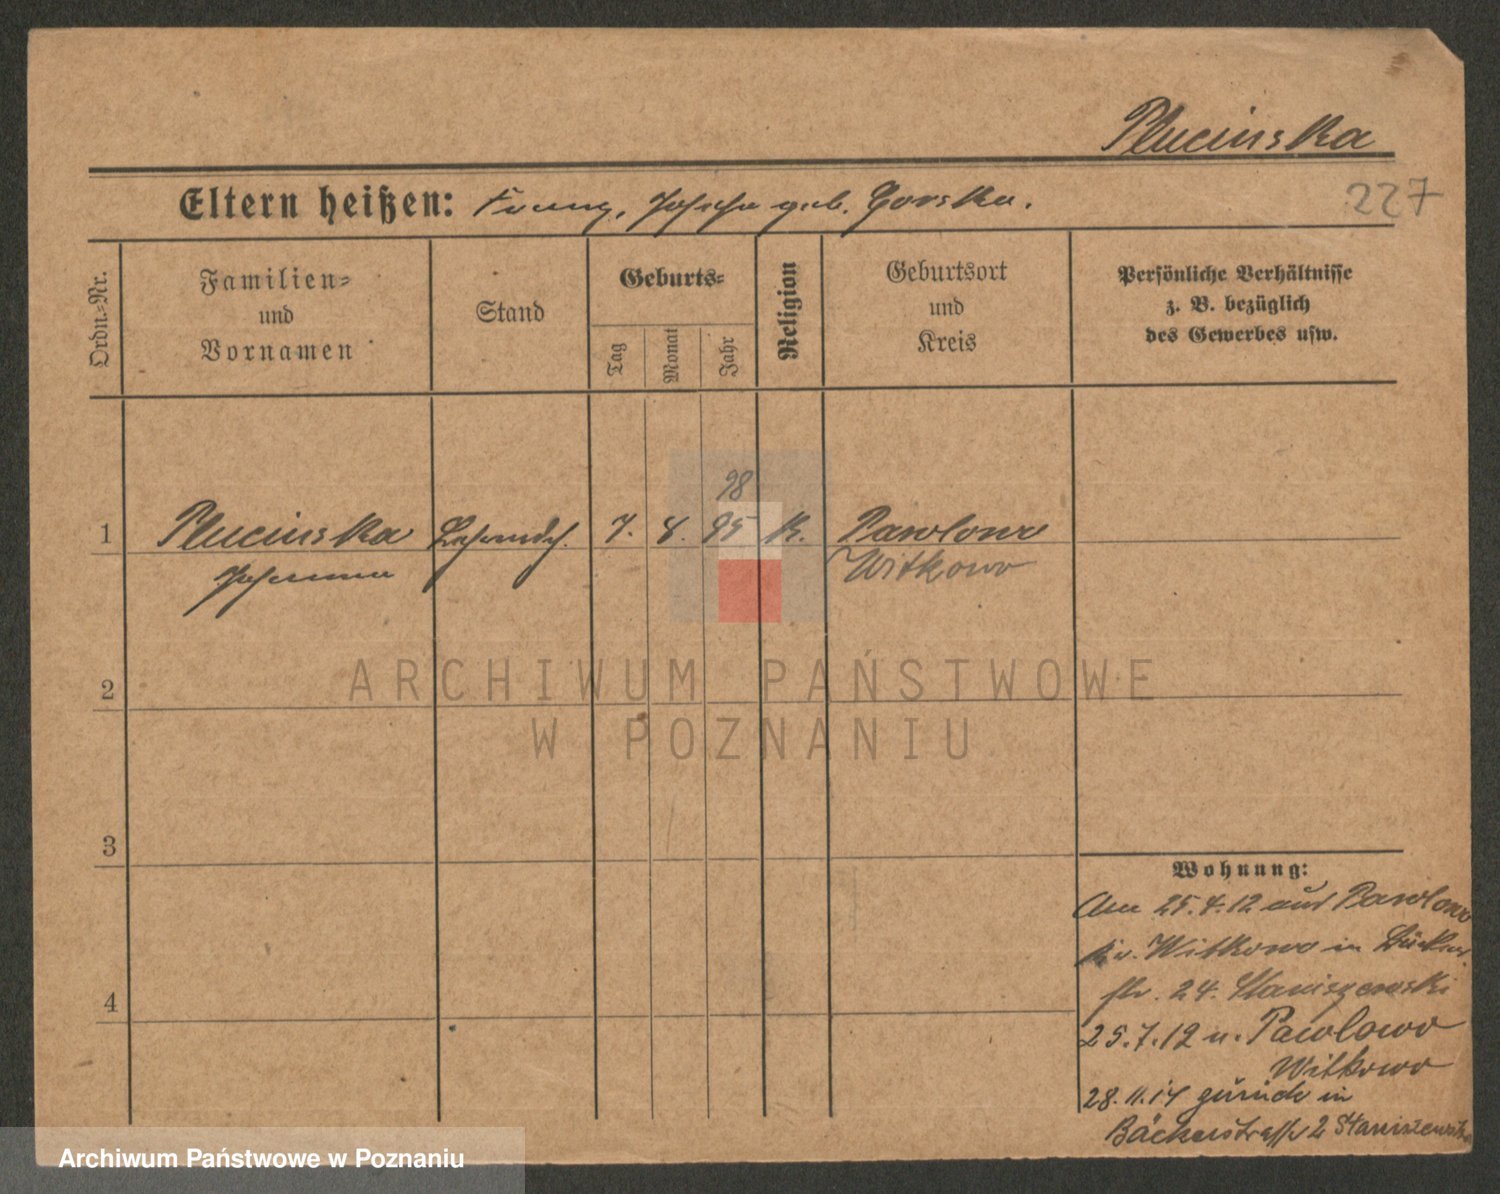 Plucinska
227
Eltern heißen: Franz, Josefa geb. Gorska.
Ordn.-Nr.
Familien-
und
Vornamen
Stand
Geburts-
Tag
Monat
Jahr
Religion
Geburtsort
und
Kreis
Persönliche Verhältnisse
z. B. bezüglich
des Gewerbes usw.
98
1 Plucinska 7. 4. 95 K. Pawlowo
Johanna Witkowo
2
3
4
Wohnung:
Am 25.4.12 aus Pawlowo
Kr. Witkowo in
str. 24. Staniszewski
25.7.12 n. Pawlowo
Witkowo
28.11.14 zurück in
Bäckerstraße 2 Staniszewska
ARCHIWUM PAŃSTWOWE
W POZNANIU
Archiwum Państwowe w Poznaniu